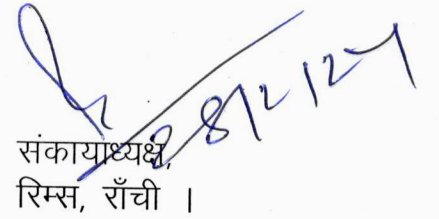 28/2/24
संकायाध्यक्ष,
रिम्स, राँची ।